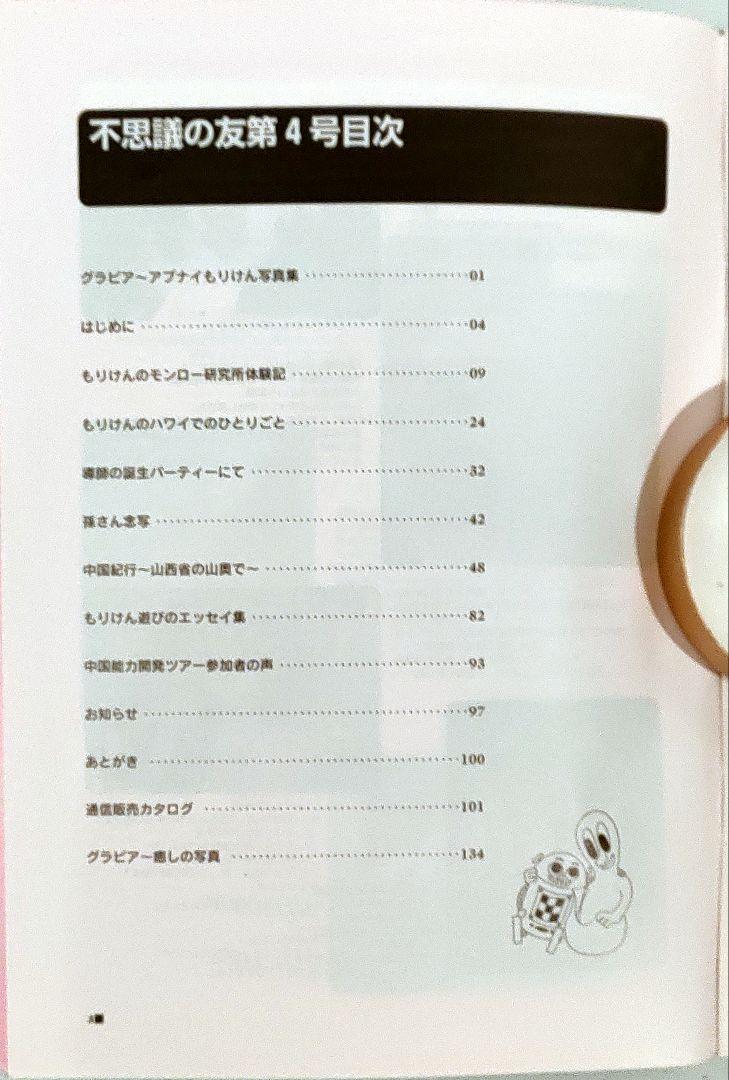 不思議の友第4号目次
グラビア～アブナイもりけん写真集 ……………………… 01
はじめに ……………………… 04
もりけんのモンロー研究所体験記 ……………………… 09
もりけんのハワイでのひとりごと ……………………… 24
導師の誕生パーティーにて ……………………… 32
孫さん念写 ……………………… 42
中国紀行～山西省の山奥で～ ……………………… 48
もりけん遊びのエッセイ集 ……………………… 82
中国能力開発ツアー参加者の声 ……………………… 93
お知らせ ……………………… 97
あとがき ……………………… 100
通信販売カタログ ……………………… 101
グラビア～癒しの写真 ……………………… 134